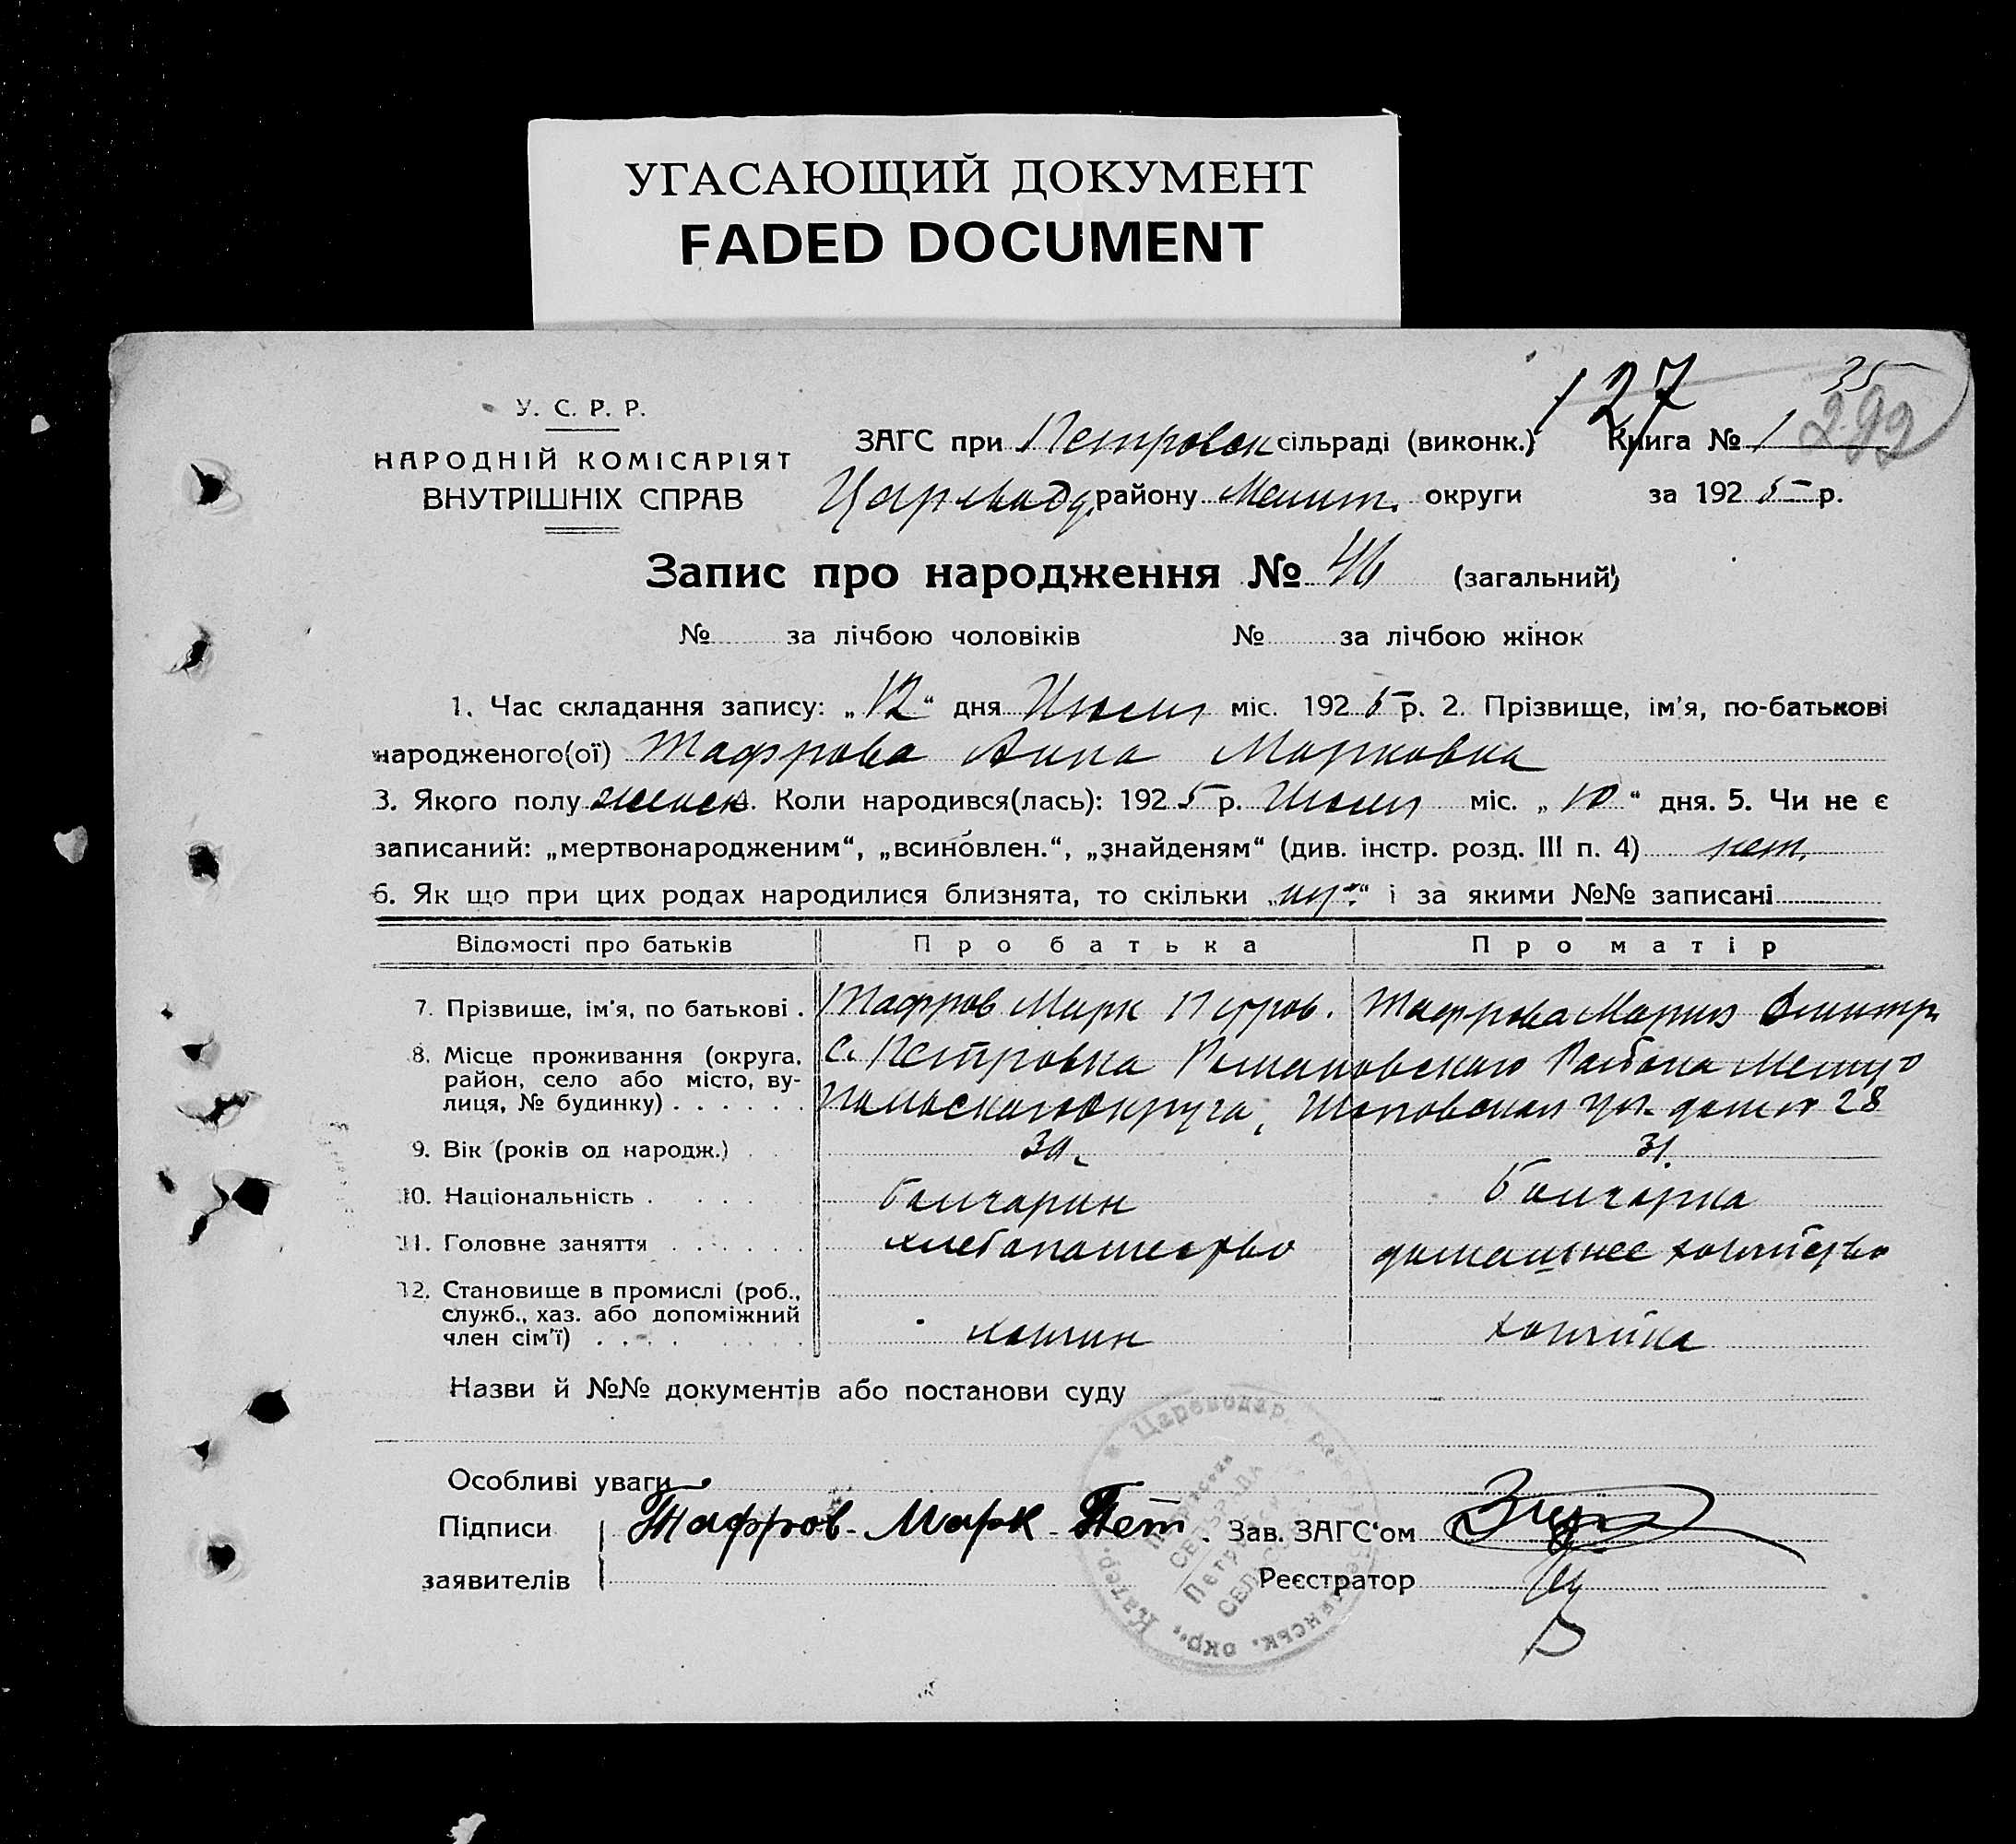 УГАСАЮЩИЙ ДОКУМЕНТ
FADED DOCUMENT
127
35
292
У. С. Р. Р.
НАРОДНІЙ КОМІСАРІЯТ
ВНУТРІШНІХ СПРАВ
ЗАГС при Петровск сільраді (виконк.) Книга № 1
Царевод. району Мелит. округи за 1925 р.
Запис про народження № 46 (загальний)
№ за лічбою чоловіків № за лічбою жінок
1. Час складання запису: „12“ дня Июля міс. 1925 р. 2. Прізвище, ім'я, по-батькові
народженого(ої) Тафрова Анна Марковна
3. Якого полу женск. Коли народився(лась): 1925 р. Июля міс. „10“ дня. 5. Чи не є
записаний: „мертвонародженим“, „всиновлен.“, „знайденям“ (див. інстр. розд. III п. 4) нет.
6. Як що при цих родах народилися близнята, то скільки і за якими №№ записані
Відомості про батьків Про батька Про матір
7. Прізвище, ім'я, по батькові . Тафров Марк Петров. Тафрова Мария Дмитр.
8. Місце проживання (округа, с. Петровка Романовскаго Района Мелито
район, село або місто, ву- польскаго Округа, ул. дом № 28
лиця, № будинку) . . . . . .
9. Вік (років од народж.) . 30. 31.
10. Національність . . . . . болгарин болгарка
11. Головне заняття . . . . . . хлебопашество домашнее хозяйство
12. Становище в промислі (роб.,
служб., хаз. або допоміжний хозяин хозяйка
член сім'ї) . . . . . . . .
Назви й №№ документів або постанови суду
Особливі уваги
Підписи Тафров - Марк - Пет. Зав. ЗАГС'ом
заявителів Реєстратор
Цареводар. окр., Катер.
Петровська
СЕЛЬРАДА